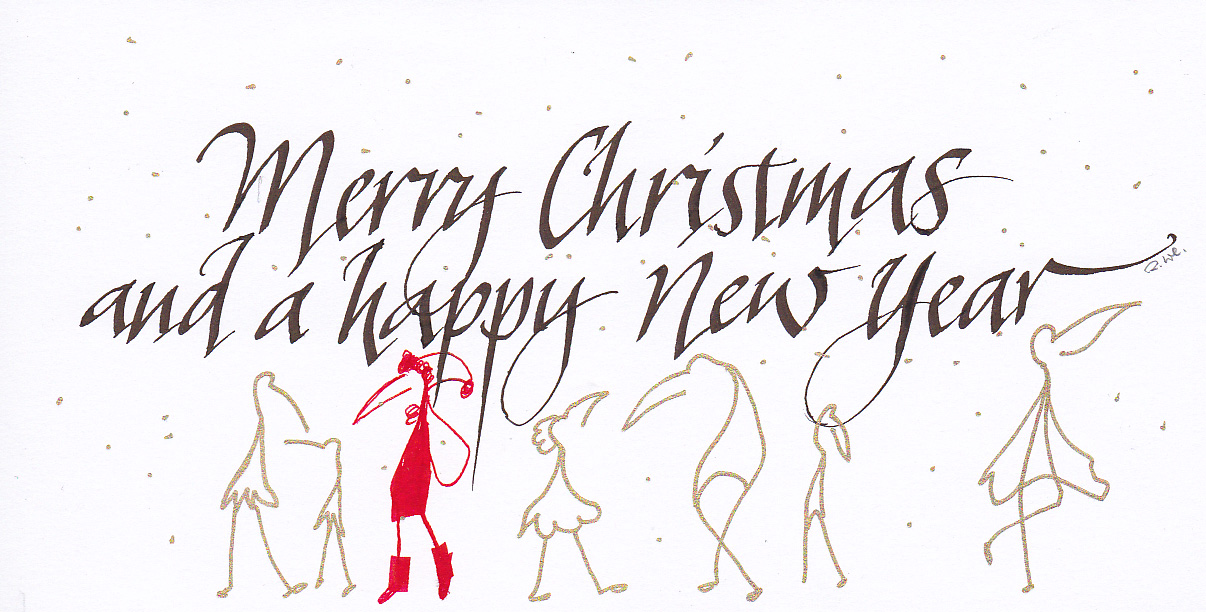 Merry Christmas
and a happy New Year